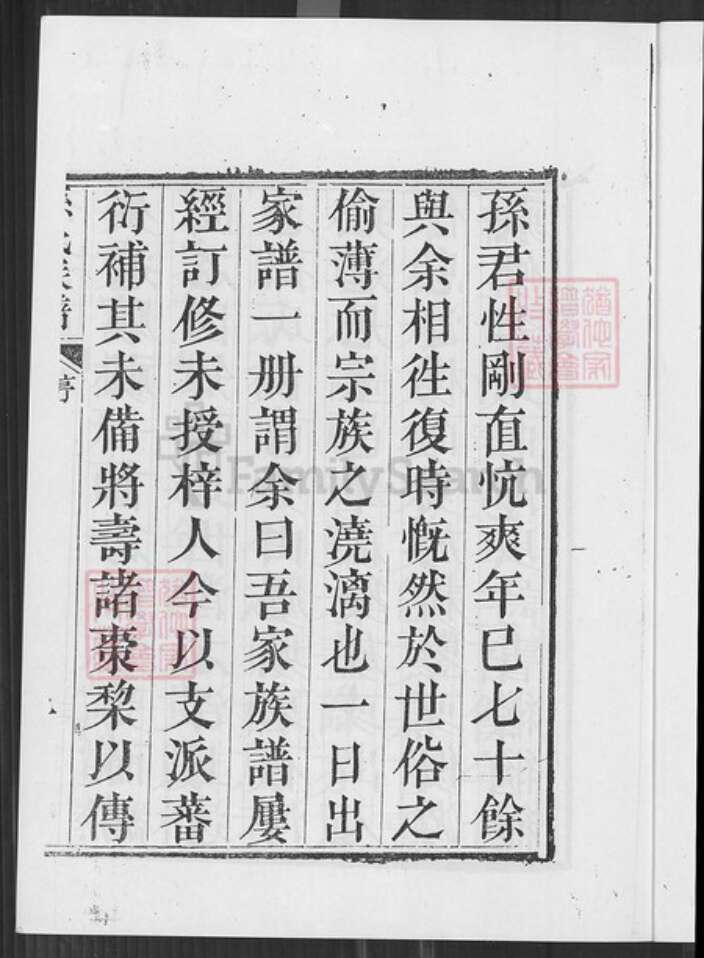 孫君性剛直忼爽年已七十餘
與余相徃復時慨然於世俗之
偷薄而宗族之澆漓也一日出
家譜一册謂余曰吾家族譜屢
經訂修未授梓人今以支派蕃
衍補其未備將壽諸棗棃以傳
序
FamilySearch